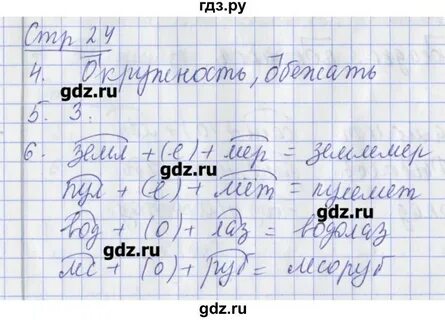 гдз.ру
Стр 24
4. Окружность, обежать
gdz.ru gdz.ru
5. 3.
6. земл + (е) + мер = землемер
gdz.ru gdz.ru
пул + (е) + мёт = пулемет
вод + (о) + лаз = водолаз
gdz.ru gdz.ru
лес + (о) + руб = лесоруб